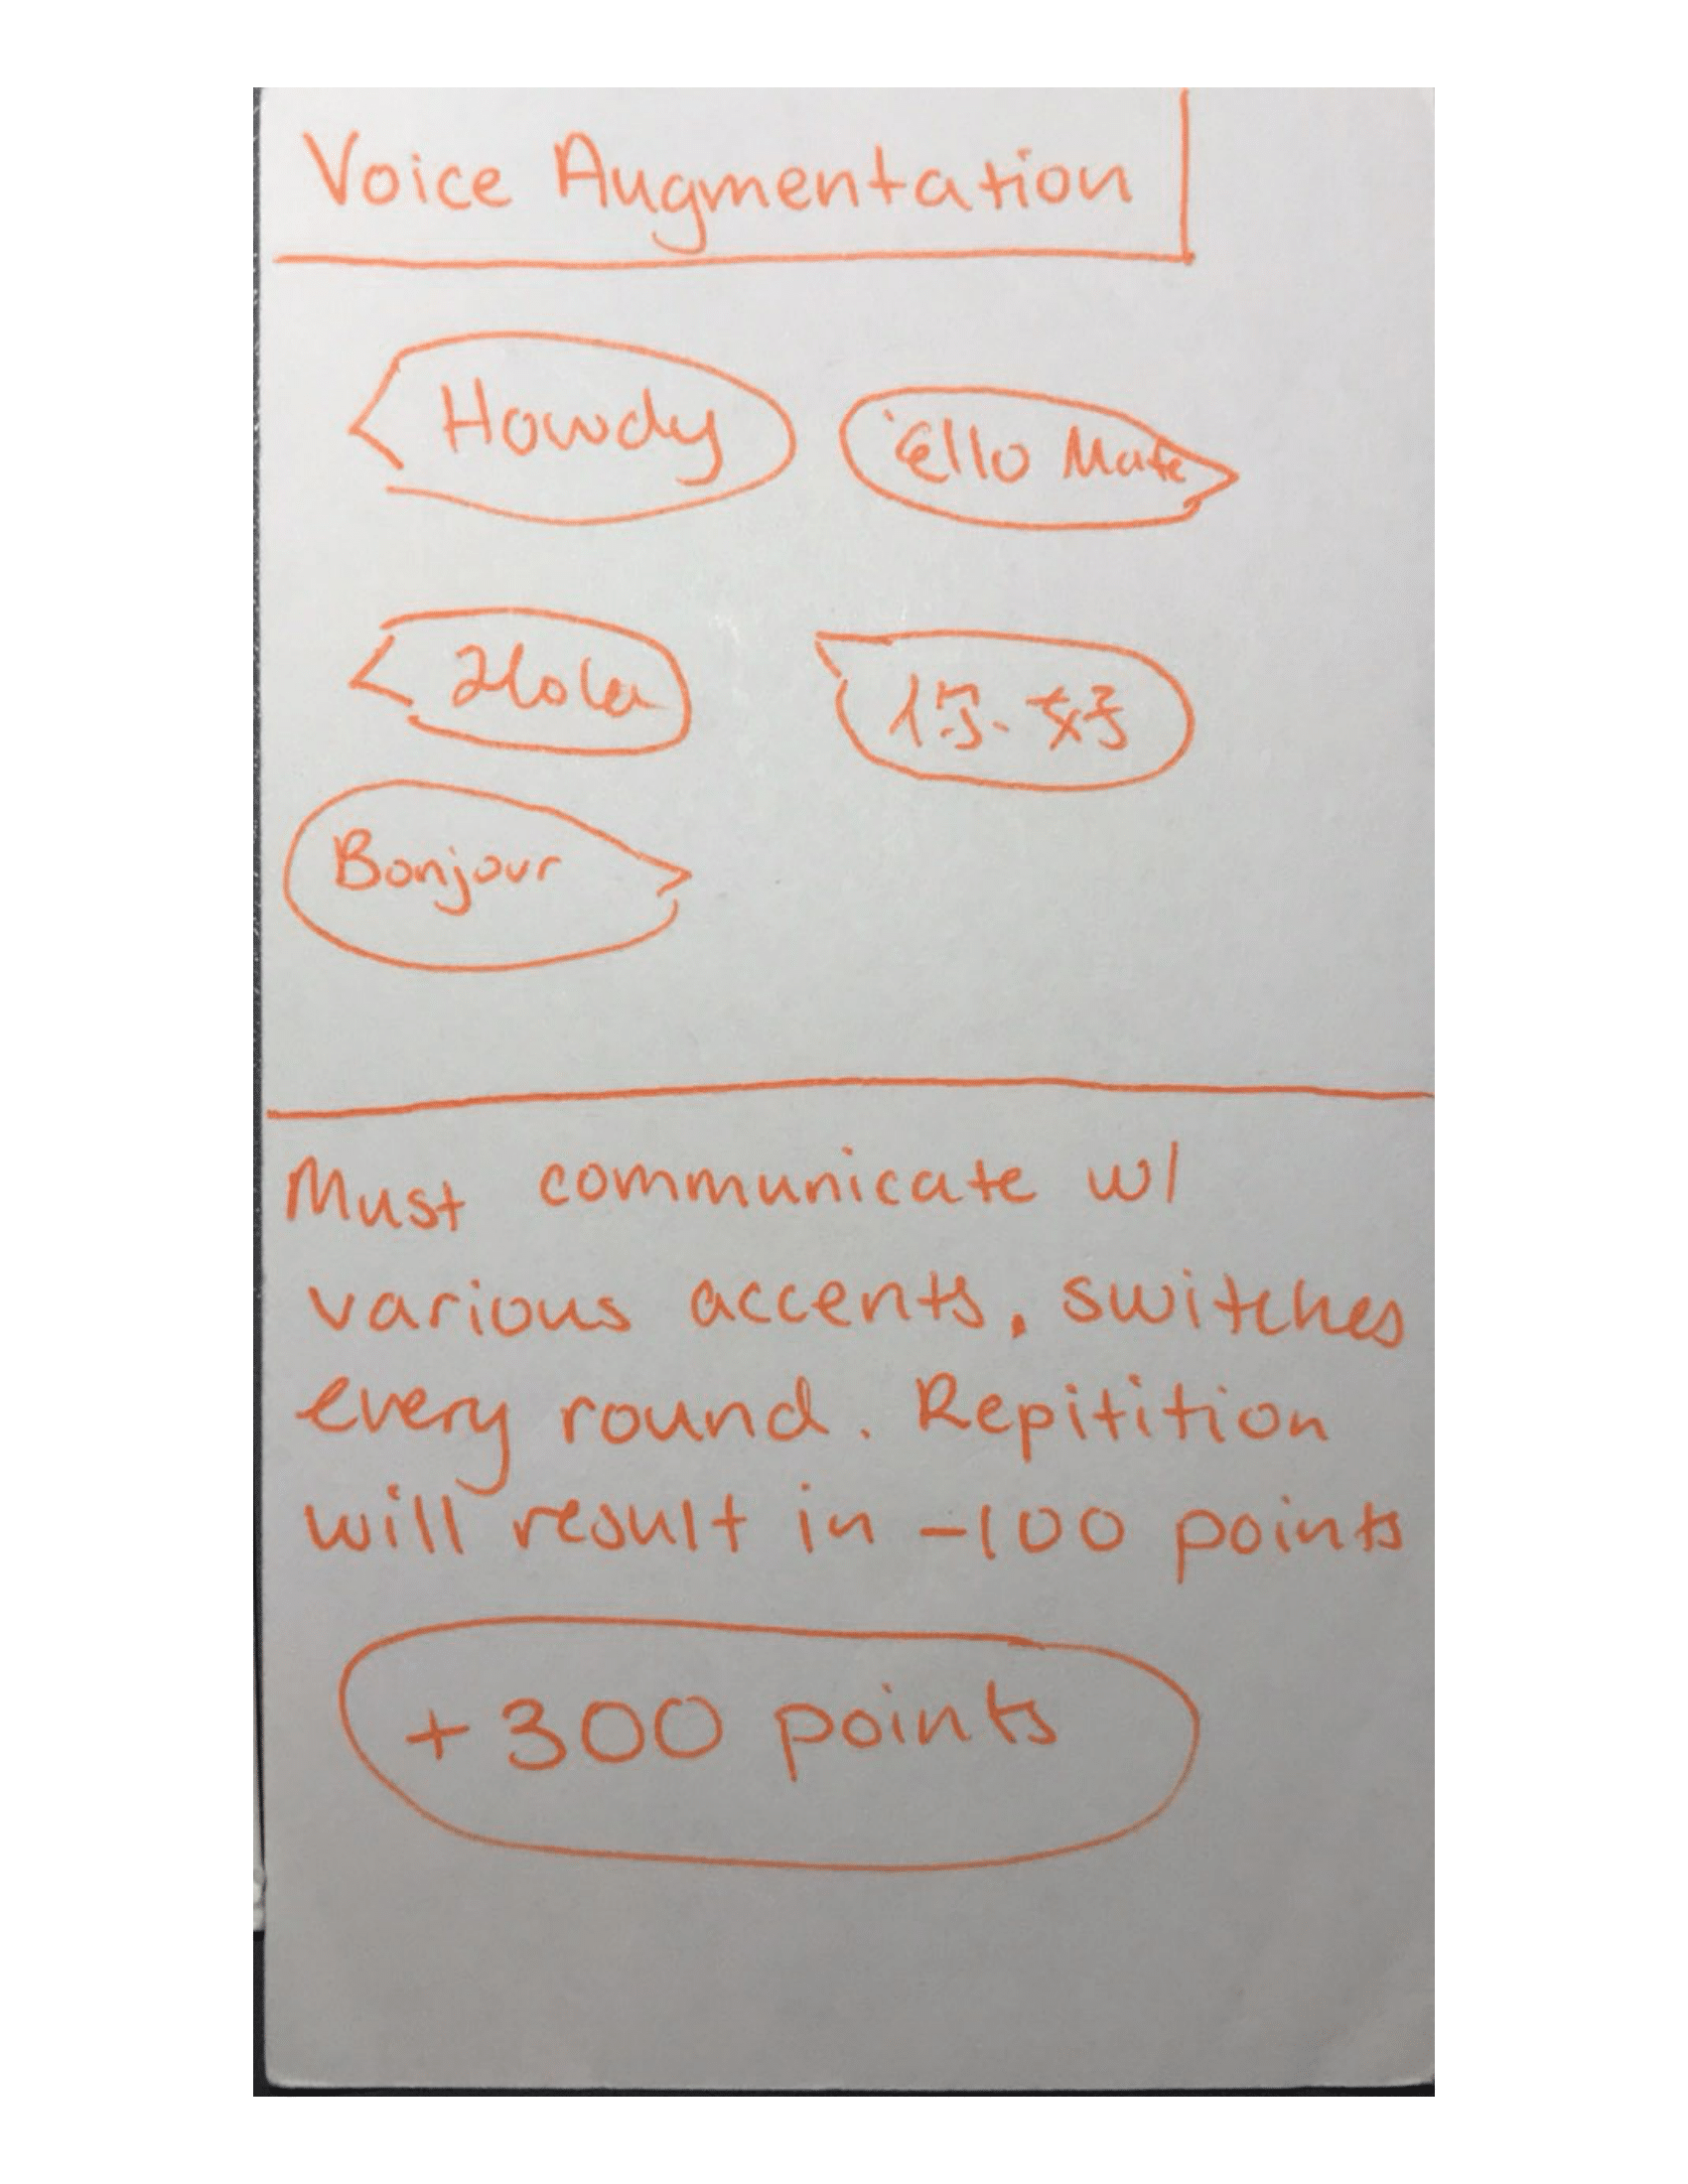 Voice Augmentation
Howdy
'Ello Mate
Hola
你好
Bonjour
Must communicate w/
various accents, switches
every round. Repitition
will result in -100 points
+300 points